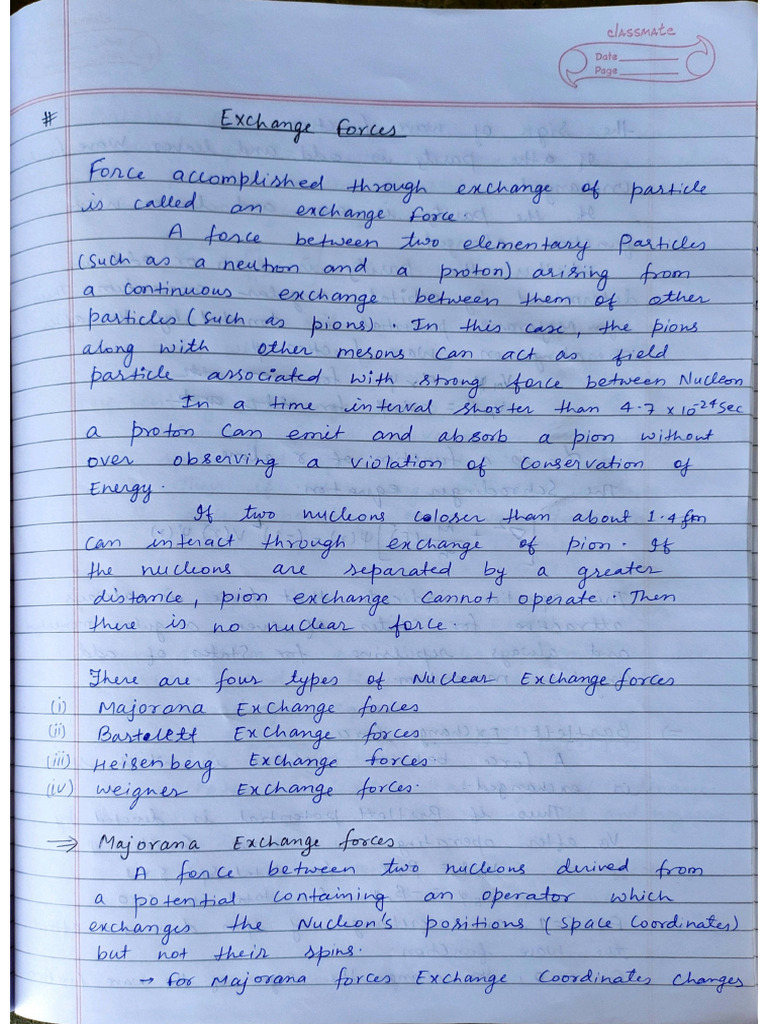 classmate
Date
Page
# Exchange forces
Force accomplished through exchange of particle
is called an exchange force.
A force between two elementary Particles
(Such as a neutron and a proton) arising from
a continuous exchange between them of other
particles (such as pions). In this case, the pions
along with other mesons can act as field
particle associated with strong force between Nucleon
In a time interval shorter than 4.7 x 10-24 sec
a proton can emit and absorb a pion without
over observing a violation of conservation of
Energy.
If two nucleons coloser than about 1.4 fm
can interact through exchange of pion. If
the nucleons are separated by a greater
distance, pion exchange cannot operate. Then
there is no nuclear force.
There are four types of Nuclear Exchange forces
(i) Majorana Exchange forces
(ii) Bartelett Exchange forces
(iii) Heisenberg Exchange forces.
(iv) Weigner Exchange forces.
⇒ Majorana Exchange forces
A force between two nucleons derived from
a potential containing an operator which
exchanges the Nucleon's positions (space coordinates)
but not their spins.
→ for Majorana forces Exchange Coordinates changes